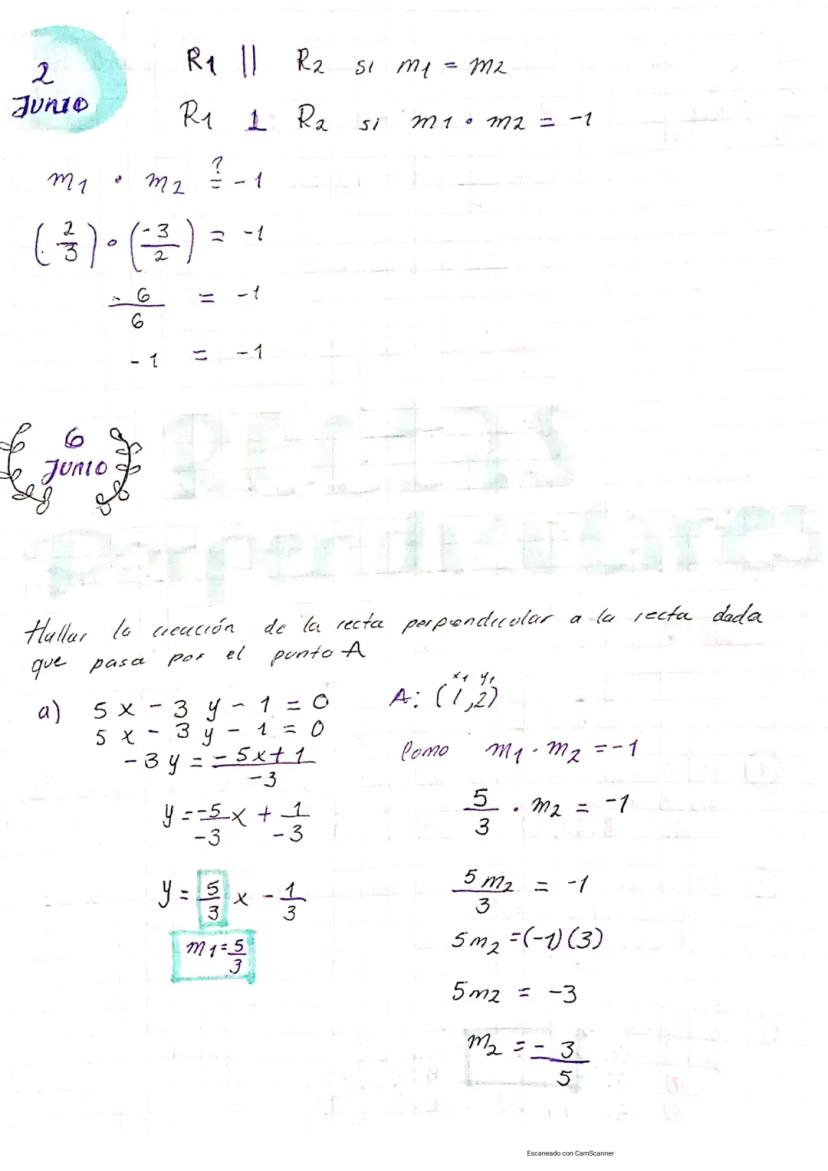 2
JUNIO
R1 || R2 si m1 = m2
R1 ⊥ R2 si m1 • m2 = -1
m1 • m2 ≟ -1
(2/3) • (-3/2) = -1
-6/6 = -1
-1 = -1
6
JUNIO
Hallar la ecuación de la recta perpendicular a la recta dada
que pasa por el punto A
a) 5x - 3y - 1 = 0
5x - 3y - 1 = 0
-3y = -5x+1/-3
y = -5/-3 x + 1/-3
y = 5/3 x - 1/3
m1 = 5/3
x1 y1
A: (1,2)
Como m1 . m2 = -1
5/3 . m2 = -1
5m2/3 = -1
5m2 = (-1)(3)
5m2 = -3
m2 = -3/5
Escaneado con CamScanner